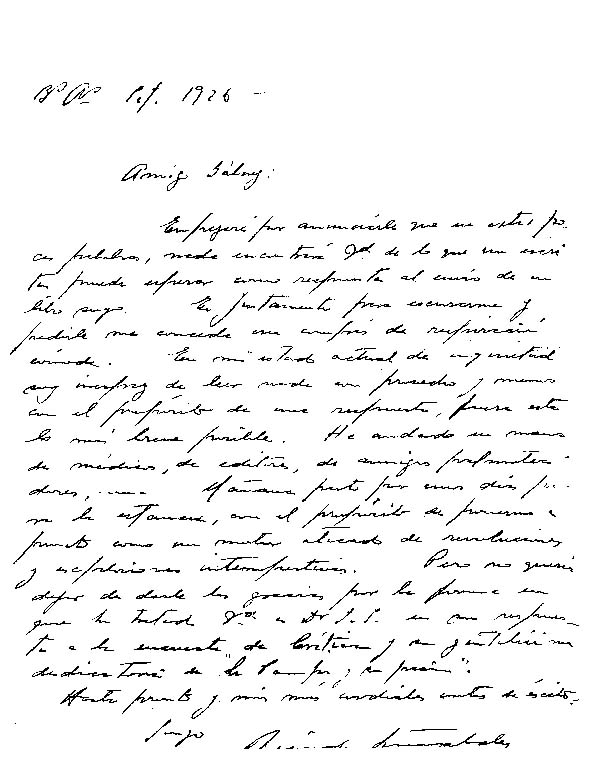 Bs As Set. 1926 -
Amigo Gálvez:
Empezaré por anunciarle que en estas po-
cas palabras, nada encontrará Vd. de lo que un escri-
tor puede esperar como respuesta al envío de un
libro suyo. Es justamente para excusarme y
pedirle me conceda un compás de respiración
cómoda. En mi estado actual de inquietud
soy incapaz de leer nada con provecho y menos
con el propósito de una respuesta, fuera esta
lo más breve posible. He andado en manos
de médicos, de editores, de amigos prometedores
dores, .... Mañana parto por unos días pa-
ra la estancia, con el propósito de ponerme a
punto como un motor atacado de revoluciones
y explosiones intempestivas. Pero no quería
dejar de darle las gracias por la forma en
que ha tratado Vd. a D. S. S. en su respues-
ta a la encuesta "de Crítica" y su gentilísima
dedicatoria de "La Pampa y su pasión".
Hasta pronto y mis más cordiales votos de éxito.
Suyo Ricardo Güiraldes